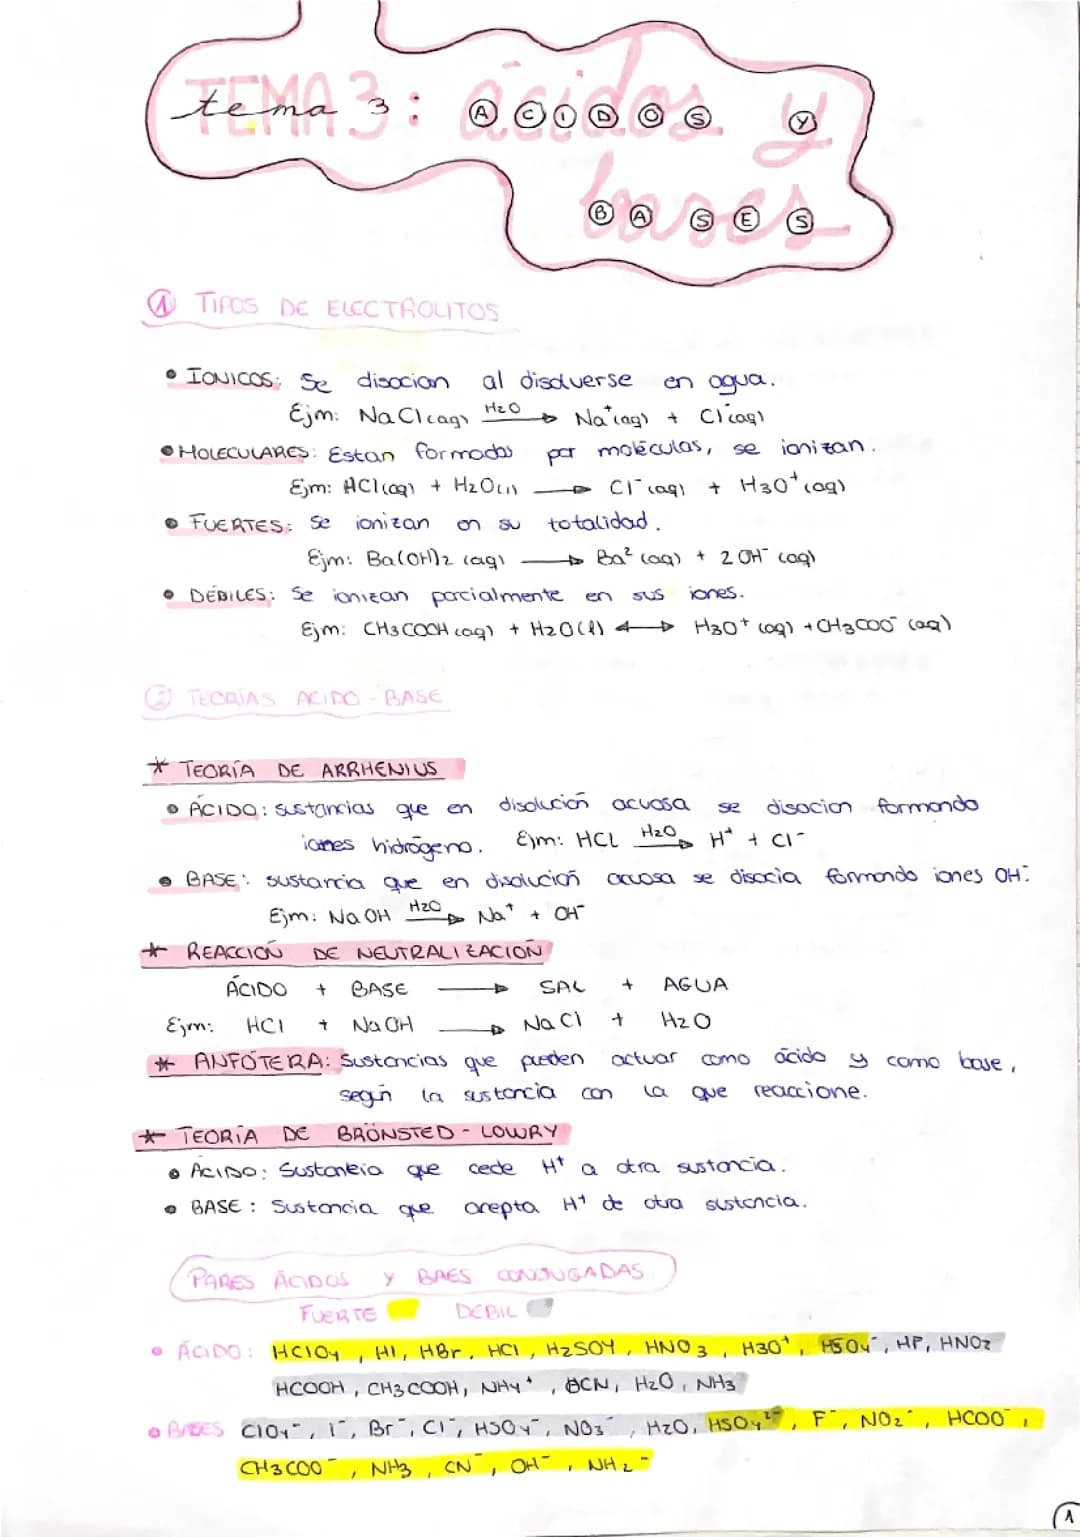 TEMA 3: ácidos y bases
tema 3: ACIDOS Y
BASES
① TIPOS DE ELECTROLITOS
• IONICOS: Se disocian al disolverse en agua.
Ejm: NaCl(aq) H2O→ Na⁺(aq) + Cl⁻(aq)
• MOLECULARES: Estan formados por moléculas, se ionizan.
Ejm: HCl(aq) + H2O(l) → Cl⁻(aq) + H3O⁺(aq)
• FUERTES: Se ionizan en su totalidad.
Ejm: Ba(OH)2 (aq) → Ba² (aq) + 2 OH⁻ (aq)
• DÉBILES: Se ionizan parcialmente en sus iones.
Ejm: CH3COOH(aq) + H2O(l) ↔ H3O⁺ (aq) + CH3COO⁻ (aq)
② TEORÍAS ACIDO-BASE
* TEORÍA DE ARRHENIUS
• ÁCIDO: sustancias que en disolución acuosa se disocion formando
iones hidrógeno. Ejm: HCL H2O→ H⁺ + Cl⁻
• BASE: sustancia que en disolución acuosa se disocia formando iones OH⁻.
Ejm: NaOH H2O→ Na⁺ + OH⁻
* REACCIÓN DE NEUTRALIZACIÓN
ÁCIDO + BASE → SAL + AGUA
Ejm: HCl + NaOH → NaCl + H2O
* ANFÓTERA: Sustancias que pueden actuar como ácido y como base,
según la sustancia con la que reaccione.
* TEORÍA DE BRÖNSTED-LOWRY
• ÁCIDO: Sustancia que cede H⁺ a otra sustancia.
• BASE: Sustancia que acepta H⁺ de otra sustancia.
PARES ÁCIDOS Y BAES CONJUGADAS
FUERTE DEBIL
• ÁCIDO: HClO4, HI, HBr, HCl, H2SO4, HNO3, H3O⁺, HSO4⁻, HF, HNO2
HCOOH, CH3COOH, NH4⁺, HCN, H2O, NH3
• BASES ClO4⁻, I⁻, Br⁻, Cl⁻, HSO4⁻, NO3⁻, H2O, HSO4²⁻, F⁻, NO2⁻, HCOO⁻,
CH3COO⁻, NH3, CN⁻, OH⁻, NH2⁻
1